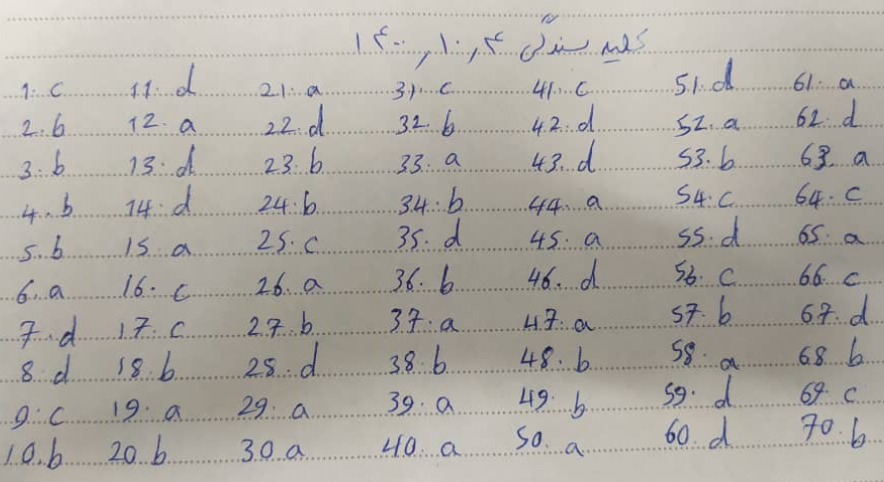 کلید بسندگی ۱۴۰۰,۱۰,۴
1. c 11. d 21. a 31. c 41. c 51. d 61. a
2. b 12. a 22. d 32. b 42. d 52. a 62. d
3. b 13. d 23. b 33. a 43. d 53. b 63. a
4. b 14. d 24. b 34. b 44. a 54. c 64. c
5. b 15. a 25. c 35. d 45. a 55. d 65. a
6. a 16. c 26. a 36. b 46. d 56. c 66. c
7. d 17. c 27. b 37. a 47. a 57. b 67. d
8. d 18. b 28. d 38. b 48. b 58. a 68. b
9. c 19. a 29. a 39. a 49. b 59. d 69. c
10. b 20. b 30. a 40. a 50. a 60. d 70. b